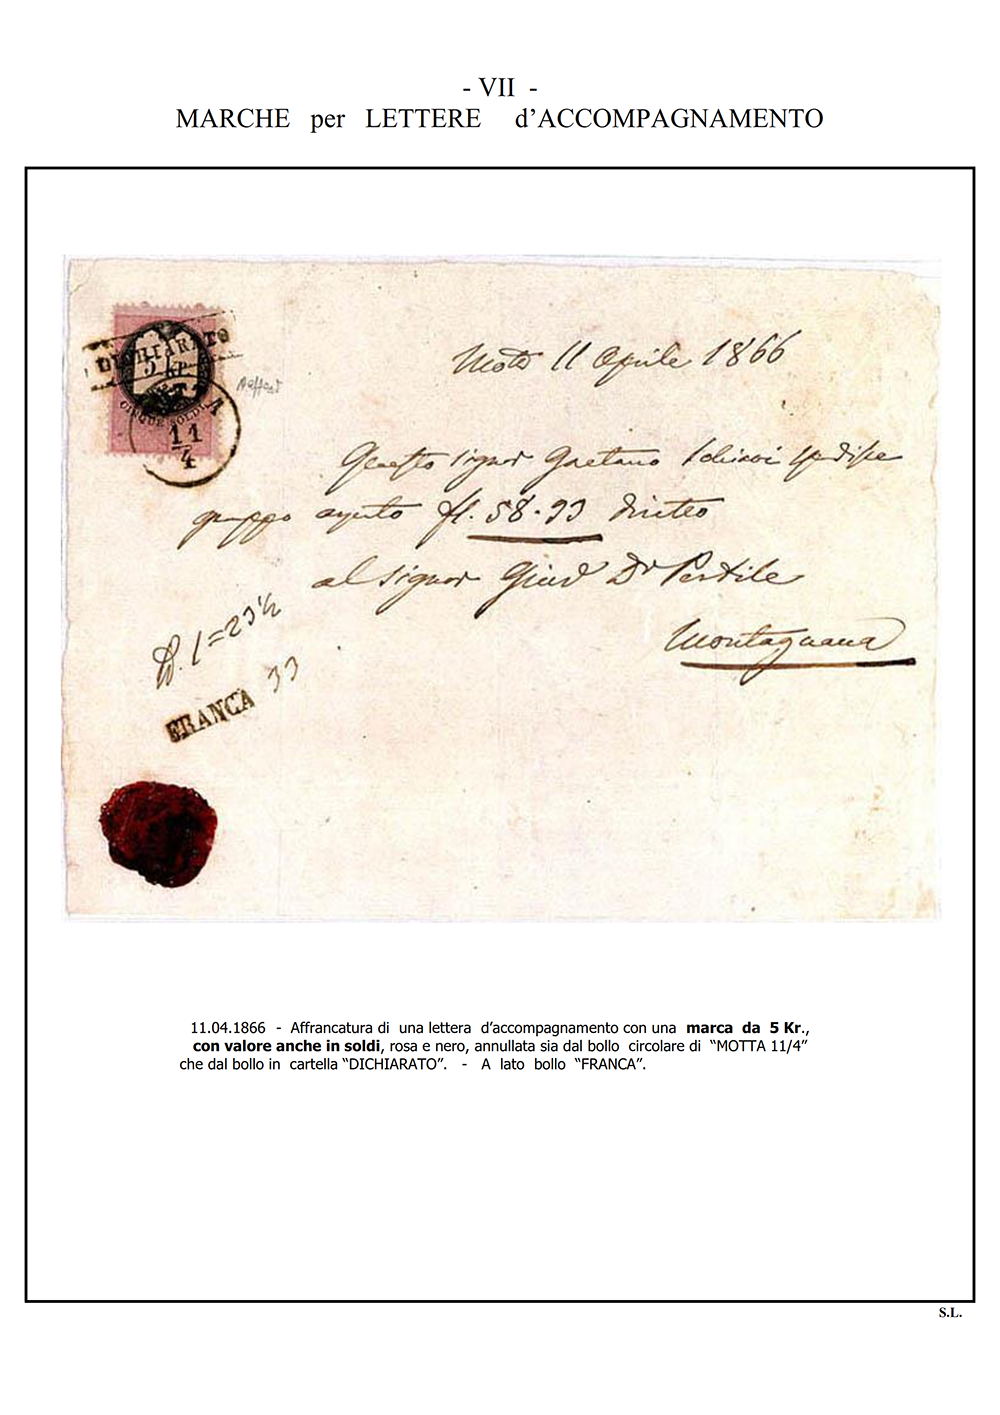 - VII -
MARCHE per LETTERE d’ACCOMPAGNAMENTO
DICHIARATO
5 KR
CINQUE SOLDI
MOTTA
11
4
Motta 11 Aprile 1866
Questo signor Gaetano Schiavi spedisce
gruppo aperto fl. 58-93 diretto
al Signor Giud Dr Pertile
Montagnana
33
FRANCA
11.04.1866 - Affrancatura di una lettera d’accompagnamento con una marca da 5 Kr.,
con valore anche in soldi, rosa e nero, annullata sia dal bollo circolare di “MOTTA 11/4”
che dal bollo in cartella “DICHIARATO”. - A lato bollo “FRANCA”.
S.L.